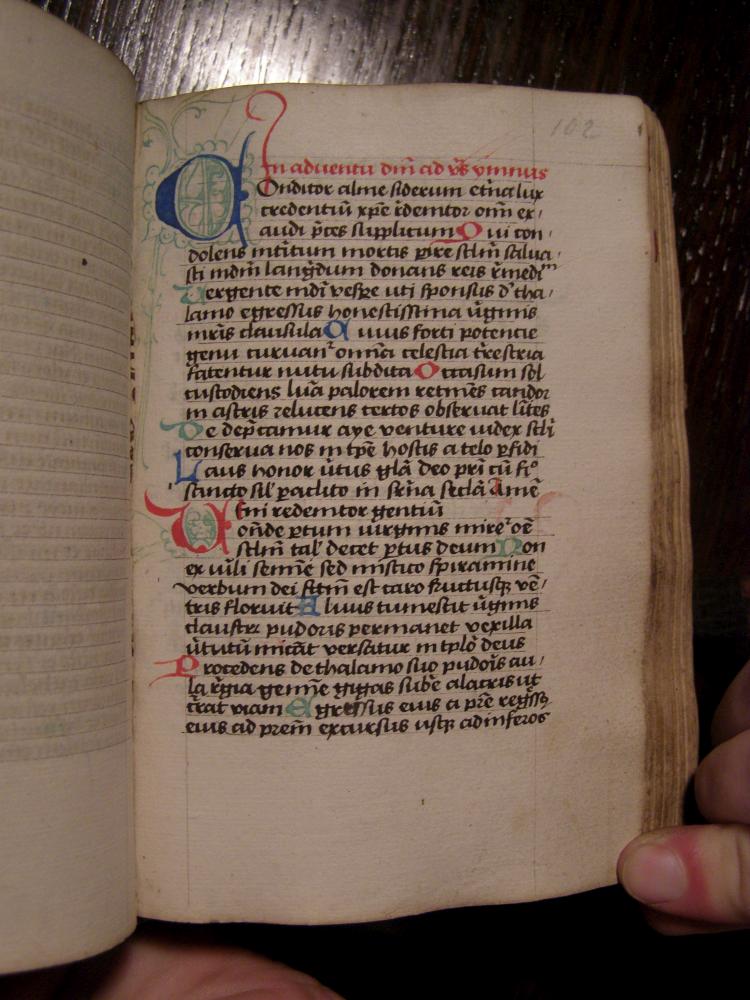 102
In adventu dnī ad vs̄ ymnus
Conditor alme siderum et̄na lux
credentiū xp̄e r̄demtor omī ex
audi p̄ces supplicum Qui con
dolens int̄itum mortis p̄ire sc̄lm̄ salua
sti mdm̄ langdum donans reis r̄mediū
Vergente mdī vesp̄e uti sponsus d' tha
lamo egressus honestissima ūginis
mr̄is clausula Cuius forti potencie
genu curuant' omīa celestia t̄restria
fatentur nutu subdita Occasum sol
custodiens lūa palorem retinēs candor
in astris relucens certos obseruat līтes
Te dep̄camur aȝye venture iudex scl̄i
conserua nos in tp̄e hostis a telo p̄fidi
Laus honor ūtus gl̄a deo pr̄i cū fi°
sancto sil' paclito in s̄rna secl̄a Amē
Veni redemtor gentiū
onde p̄tum uirginis mire' oē
sclm̄ tal' decet p̄tus deum Non
ex uīli semīe sed mistico spiramine
verbum dei fctm̄ est caro fructusqȝ vē
tris floruit Aluus tumescit ūginis
claustrꝝ pudoris permanet vexilla
ūtutū micāt versatur in tp̄lo deus
Procedens de thalamo suo pudoīs au
la r̄gia gemīe gigas sub̄e alacris ut
c̄rat viam Egressus eius a pr̄e regssqȝ
eius ad prem̄ excursus usqȝ ad inferos